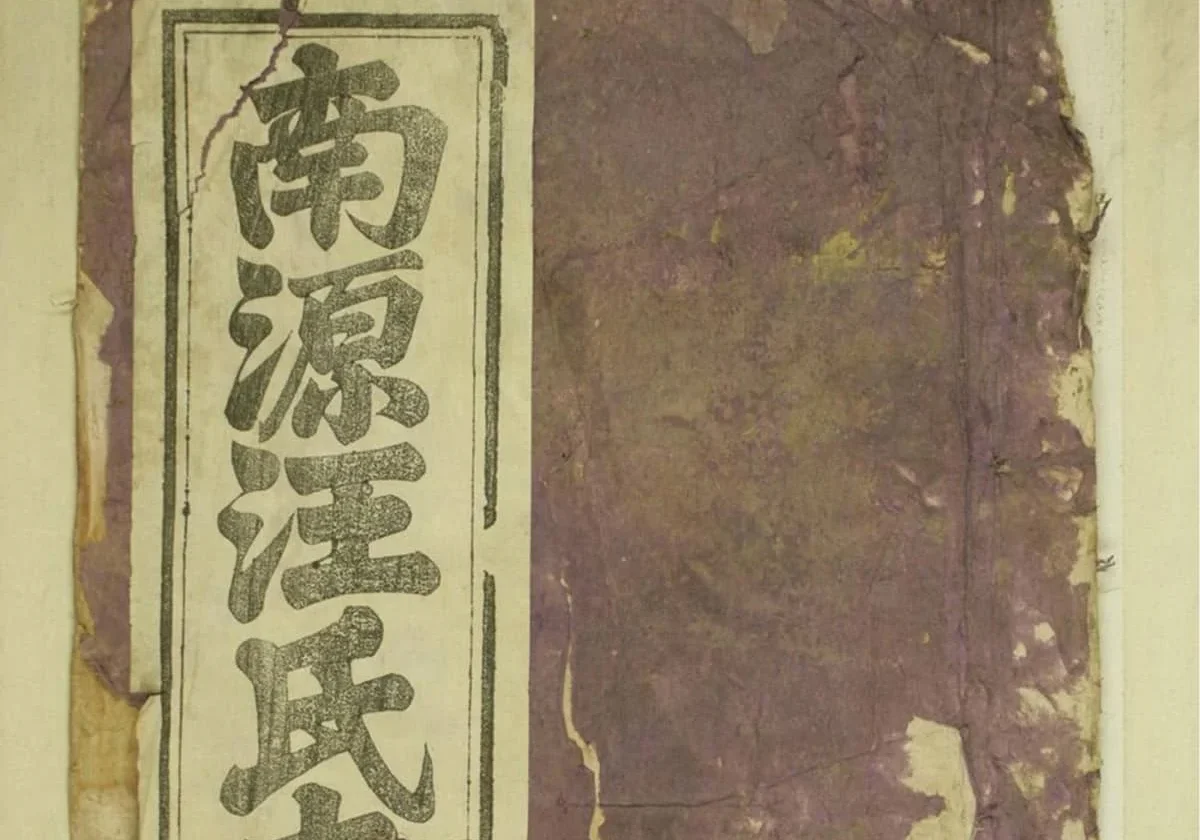 南源汪氏